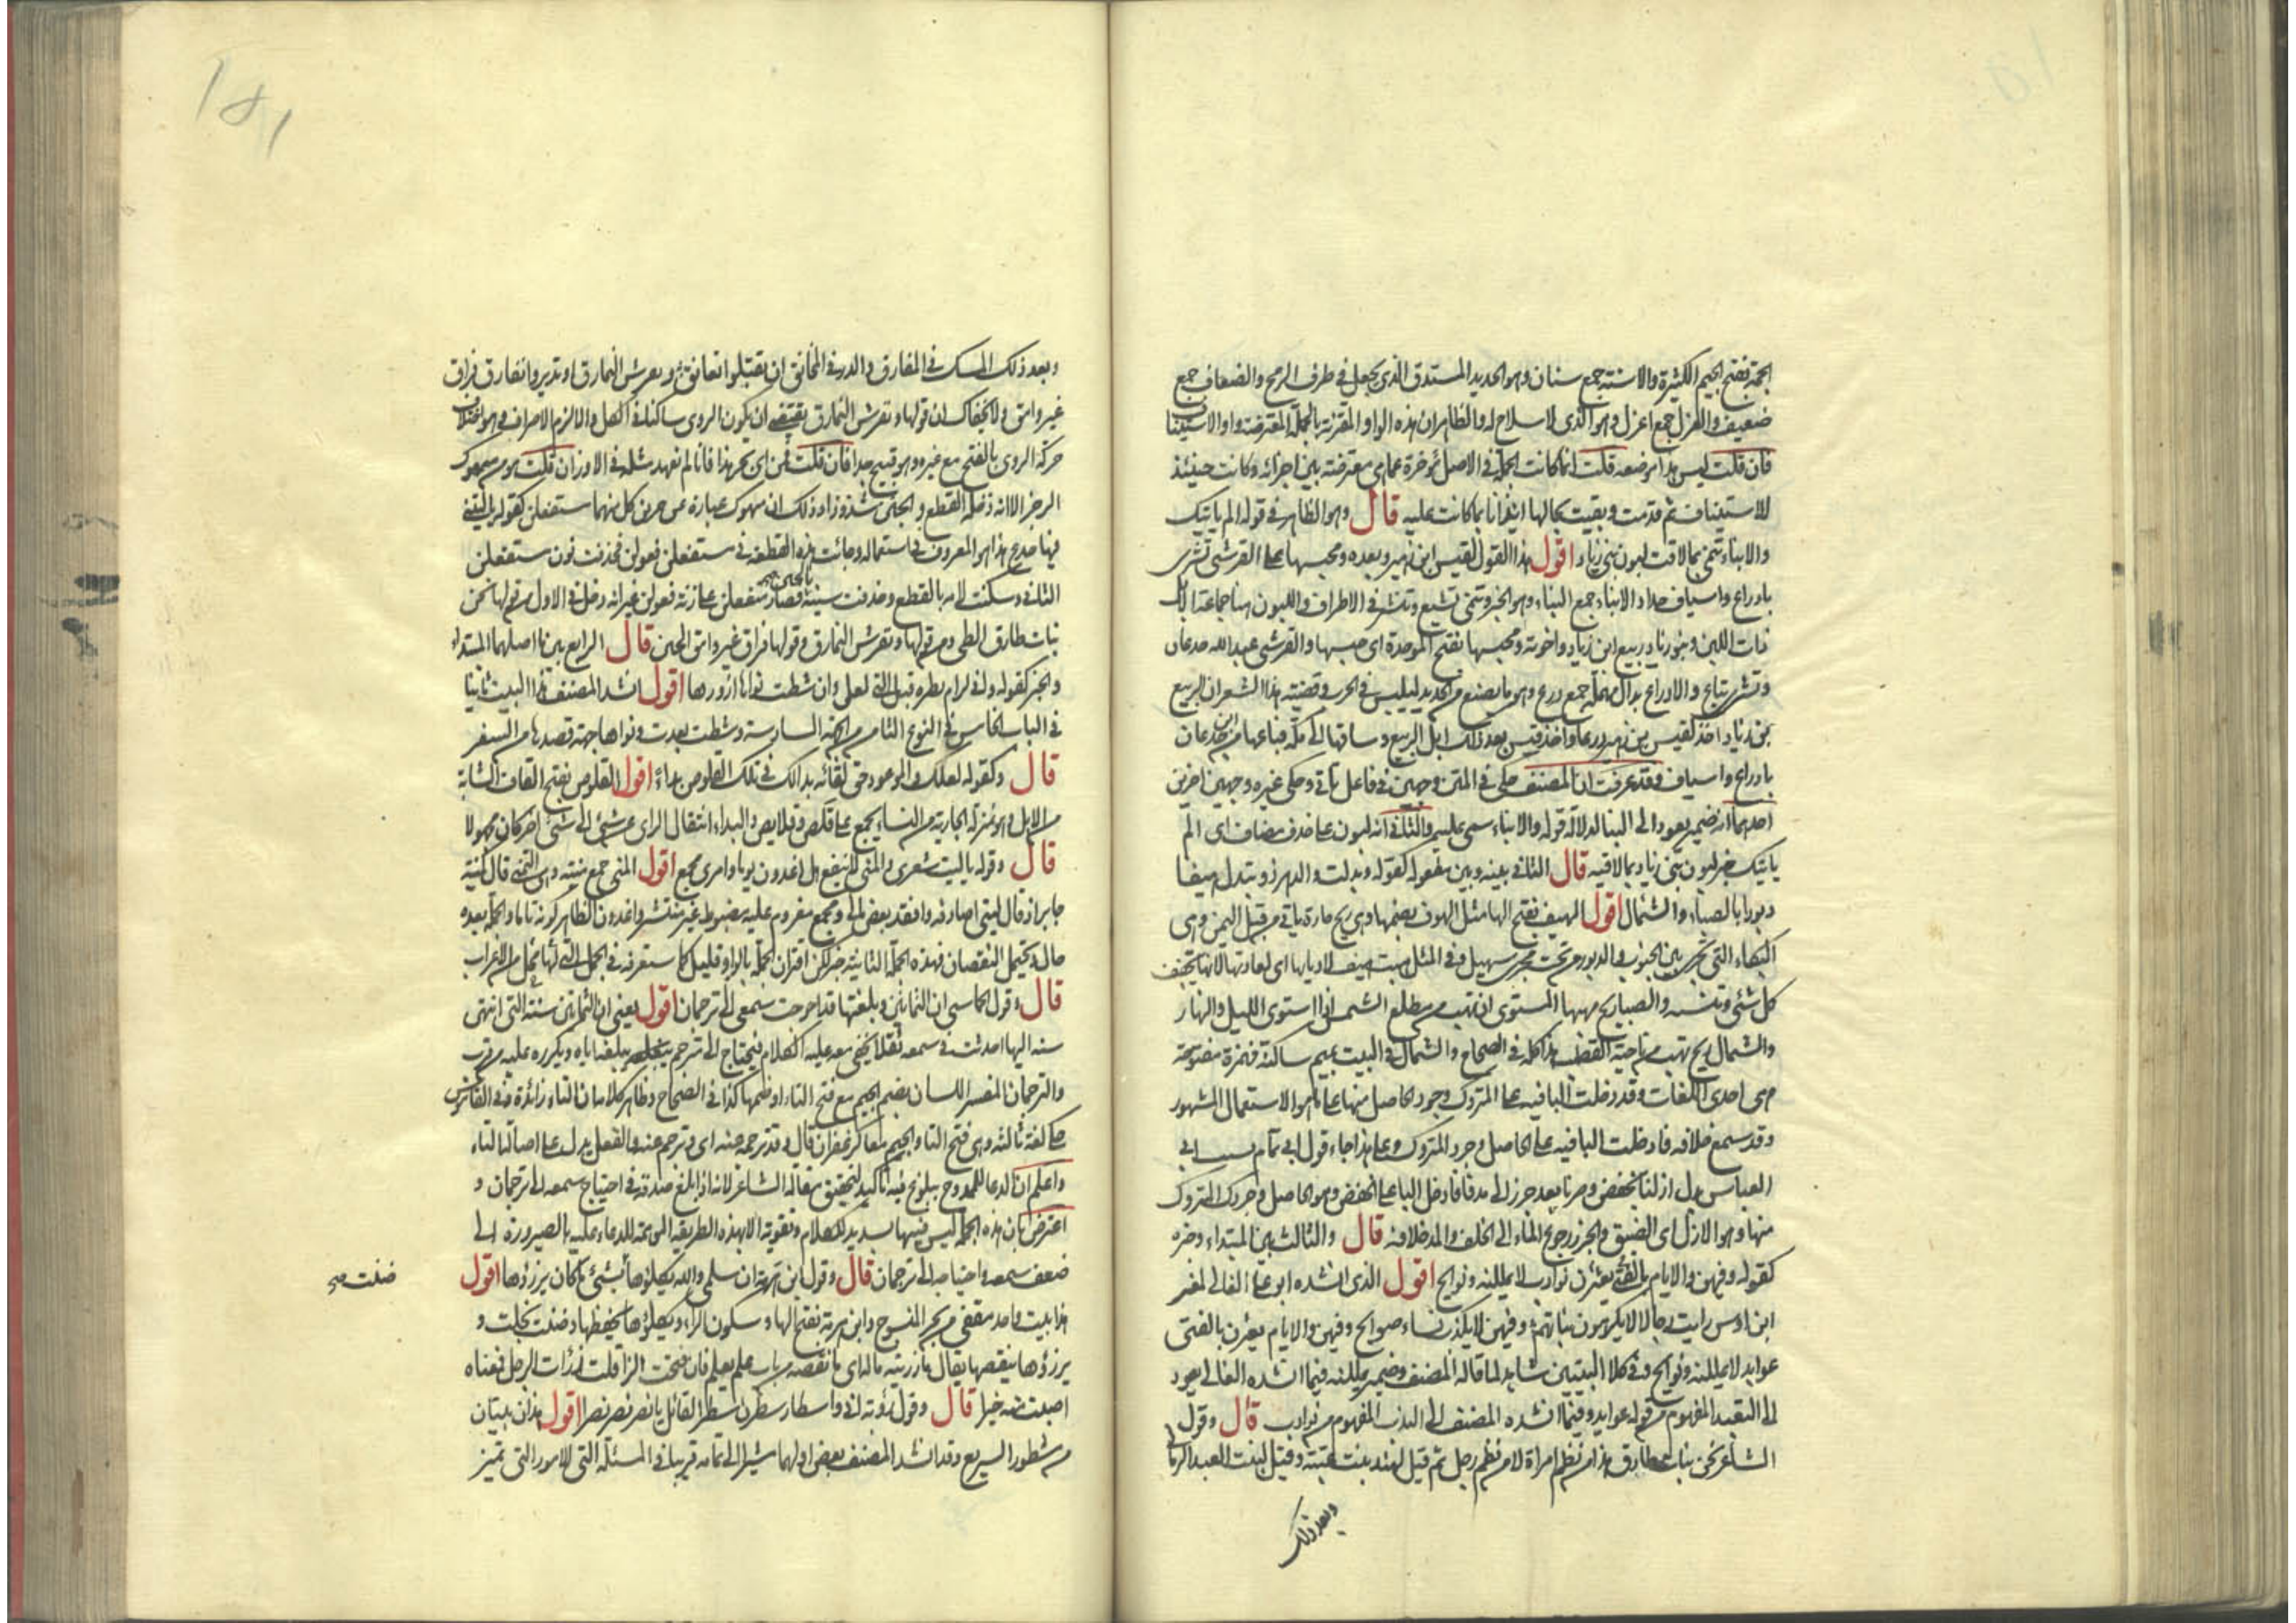 الجمة بفتح الجيم الكثيرة والاسنة جمع سنان وهو الحديد المستدق الذي يجعل في طرف الرمح والضعاف جمع
ضعيف والعزل جمع اعزل وهو الذي لا سلاح له والظاهر ان هذه الواو المقترنة بالجملة المعترضة واو الاستيناف
فان قلت ليس هذا موضعه قلت انما كانت الجملة في الاصل مؤخرة عما هي معترضة بين اجزائه وكانت حينئذ
للاستيناف ثم قدمت وبقيت بحالها ايذانا بما كانت عليه قال وهو الظاهر في قوله الم ياتيك
والانباء تنمي بما لاقت لبون بني زياد اقول هذا القول لقيس ابن زهير وبعده ومحبسها على القرشي تشرى
بادراع واسياف حداد الانباء جمع النباء وهو الخبر وتنمي تشيع وتنشر في الاطراف واللبون هنا جماعة الابل
ذات اللبن وبنو زياد ربيع ابن زياد واخوته ومحبسها بفتح الموحدة اي حبسها والقرشي عبد الله جدعان
وتشرى تباع والادراع بدال مهملة جمع درع وهو ما يصنع من الحديد ليلبس في الحرب وقضية هذا الشعر ان الربيع
بن زياد اخذ لقيس بن زهير درعا واخذ قيس بعد ذلك ابل الربيع وساقها الى مكة فباعها من ابن جدعان
بادراع واسياف وقد عرفت ان المصنف حكى في المتن وجهين في فاعل ياتي وحكى غيره وجهين اخرين
احدهما انه ضمير يعود الى النبا لدلالة قوله والانباء سمي عليه والثاني انه لبون على حذف مضاف اي الم
ياتيك خبر لبون بني زياد بما لاقيه قال الثاني بينه وبين مفعوله كقوله وبدلت والدهر ذو تبدل هيفا
دبورا بالصباء والشمال اقول الهيف بفتح الها مثل الهوف بضمها وهي ريح حارة ياتي من قبل اليمن وهي
النكباء التي تجري بين الجنوب والدبور من تحت مجرى سهيل وفي المثل هبت هيف لاديانها اي لعادتها لانها تجفف
كل شئ وتيبسه والصبا ريح مهبها المستوى ان تهب من مطلع الشمس اذا استوى الليل والنهار
والشمال ريح تهب من ناحية القطب هذا كله في الصحاح والشمال في البيت بميم ساكنة فهمزة مفتوحة
هي احدى اللغات وقد دخلت البا فيه على المتروك وجود الحاصل منها على ما هو الاستعمال المشهور
وقد سمع خلافه فادخلت البا فيه على الحاصل وجرد المتروك وعلى هذا جاء قول ابي تمام بسيب ابي
العباس بدل ازلنا بخفض وصرنا بعد جزر الى مد فادخل الباء على الخفض وهو الحاصل وجرد المتروك
منها وهو الازل اي الضيق والجزر رجوع الماء الى الخلف والمد خلافه قال والثالث بين المبتداء وخبره
كقوله وفيهن والايام بالفتى يعثرن نوادب لا يمللنه ونوائح اقول الذي انشده ابو علي القالي لمعن
ابن اوس رايت رجالا يكرهون بناتهم وفيهن لا يكذبن نساء صوالح وفيهن والايام يعثرن بالفتى
عوايد لا يمللنه ونوائح وفي كلا البيتين شاهد لما قاله المصنف وضمير يمللنه فيما انشده القالي يعود
الى التعبد المفهوم من قوله عوايد وفيما انشده المصنف الى الندب المفهوم من نوادب قال وقول
الشاعر نحن بنات طارق هذا من نظم امراة لا من نظم رجل ثم قيل لهند بنت عتبة وقيل لبنت العبد الرماني
وبعد ذلك
وبعد ذلك المسك في المفارق والدر في المخانق ان تقبلوا نعانق ونفرش النمارق او تدبروا نفارق فراق
غير وامق ولا يخفاك ان قولها ونفرش النمارق يقتضي ان يكون الروي ساكنا في الكل والا لزم الاصراف وهو اختلاف
حركة الروي بالفتح مع غيره وهو قبيح جدا فان قلت فمن اي بحر هذا فانا لم نعهد مثله في الاوزان قلت هو من منهوك
الرجز الا انه دخله القطع والخبن شذوذا وذلك ان منهوك عبارة عن جزئين كل منهما مستفعلن كقوله يا ليتني
فيها جذع هذا هو المعروف في استعماله وجائت هذه القطعة في مستفعلن فعولن فحذفت نون مستفعلن
الثاني وسكنت لامه بالقطع وحذفت سينه بالخبن فصار متفعل على زنة فعولن غير انه دخل في الاول من قولها نحن
بنات طارق الطي ومن قولها ونفرش النمارق وقولها فراق غير وامق الخبن قال الرابع بين ما اصلهما المبتداء
والخبر كقوله واني لرام نظرة قبل التي لعلي وان شطت نواها ازورها اقول انشد المصنف هذا البيت ثانيا
في الباب الخامس في النوع الثامن من الجهة السادسة وشطت بعدت ونواها جهة قصدها من السفر
قال وكقوله لعلك والموعود حق لقائه بدا لك في تلك القلوص بداء اقول القلوص بفتح القاف الشابة
من الابل وهو بمنزلة الجارية من النساء يجمع على قلص وقلايص والبداء انتقال الراي عن شئ الى شئ اخر كان مجهولا
قال وقوله يا ليت شعري والمنى لا ينفع هل اغدون يوما وامري مجمع اقول المنى جمع منية وهي التمني قال كمنية
جابر اذ قال ليتي اصادفه وافقد بعض مالي ومجمع معزوم عليه مضبوط غير منتشر واغدون الظاهر كونه تاما والجملة بعده
حال ويحتمل النقصان فهذه الجملة الثانية خبر لكن اقتران الجملة بالواو قليل كما ستعرفه في الجمل التي لها محل من الاعراب
قال وقول الحماسي ان الثمانين وبلغتها قد احوجت سمعي الى ترجمان اقول يعني ان الثمانين سنة التي انتهى
سنه اليها احدثت في سمعه ثقلا يخفى معه عليه الكلام فيحتاج الى مترجم يبلغه اياه ويكرره عليه من قرب
والترجمان المفسر للسان بضم الجيم مع فتح التاء او ضمها كذا في الصحاح وظاهر كلامه ان التاء زائدة وفي القاموس
حكى لغة ثالثة وهي فتح التا والجيم معا كزعفران قال وقد ترجمه عنه اي وترجم عنه والفعل يدل على اصالة التاء
واعلم ان الدعا للممدوح ببلوغ فيه تاكيد لتحقيق مقالة الشاعر لانه اذا بلغ صدقه في احتياج سمعه الى ترجمان و
اعترض بان هذه الجملة ليس فيها تسديد للكلام وتقوية الا بهذه الطريقة المؤدية للدعاء عليه بالصيرورة الى
ضعف سمعه واحتياجه الى ترجمان قال وقول ابن هرمة ان سليمى والله يكلؤها ضنت بشئ ما كان يرزؤها اقول
ضنت صح
هذا بيت واحد مقفى من بحر المنسرح وابن هرمة بفتح الها وسكون الراء ويكلؤها يحفظها وضنت بخلت و
يرزؤها ينقصها يقال ما رزيته ماله اي ما نقصه من باب علم يعلم فان فتحت الزا قلت رزأت الرجل فمعناه
اصبت منه خيرا قال وقول رؤبة اني واسطار سطرن سطرا لقائل يا نصر نصر نصرا اقول هذان بيتان
من شطور السريع وقد انشد المصنف بعض اولهما مشيرا الى تمامه قريبا في المسئلة التي للامور التي تميز